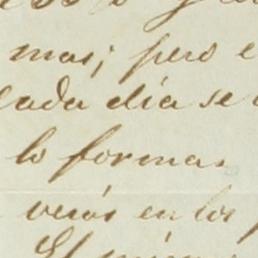 mas; pero e
cada dia se
lo forman
verás en los
El mismo